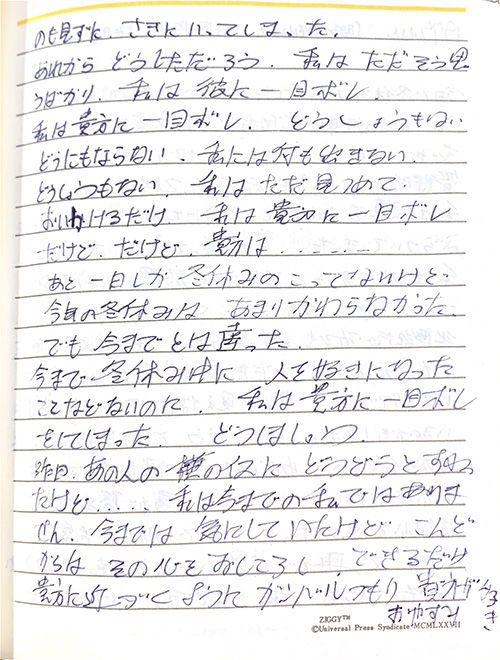 のも見ずに さきにいってしまった.
あれから どうしただろう. 私は ただそう思
うばかり. 私は 彼に一目ボレ.
私は貴方に一目ボレ. どうしょうもない
どうにもならない. 私には何も出きない.
どうしつもない. 私は ただ見つめて.
おいかけるだけ. 私は 貴方に一目ボレ
だけど. だけど. 貴方は.......
あと 一日しか 冬休みのこってないけど.
今年の冬休みは あまりかわらなかった.
でも 今までとは 違った.
今まで 冬休み中に 人を好きになった
ことなどないのに. 私は貴方に一目ボレ
をしてしまった どうしましょう.
昨日. あの人の 横のイスに どうどうとすわっ
たけど..... 私は今までの私ではありま
せん. 今までは 気にしていたけど こんど
からは その心をおしころし. できるだけ
貴方に近づくように ガンバルつもり 貴方がすき
おやすみ
ZIGGY™
©Universal Press Syndicate MCMLXXVII